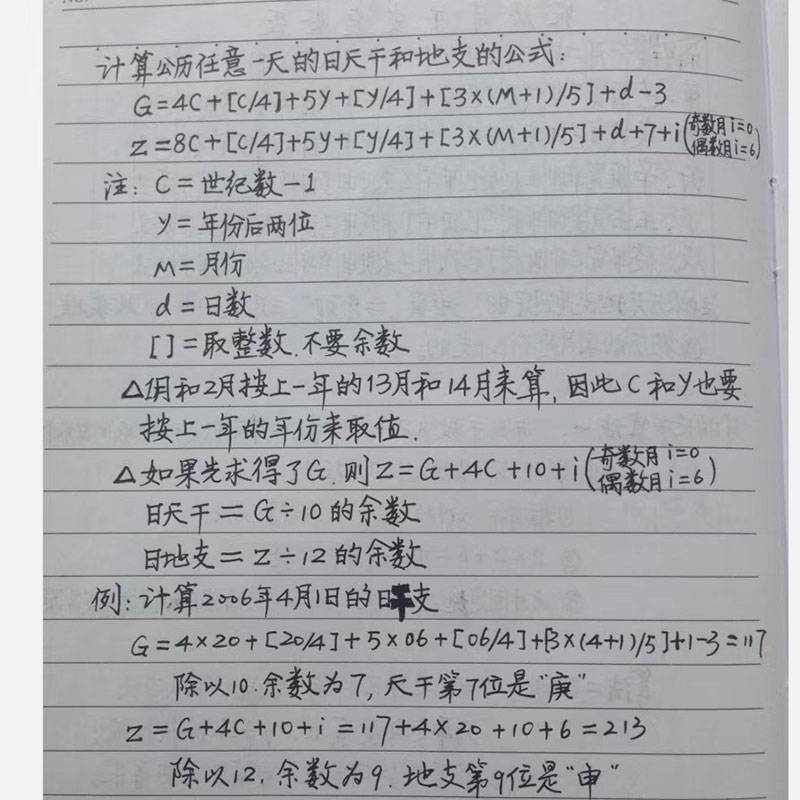 计算公历任意一天的日天干和地支的公式:
G=4C+[C/4]+5y+[y/4]+[3×(M+1)/5]+d-3
Z=8C+[C/4]+5y+[y/4]+[3×(M+1)/5]+d+7+i(奇数月i=0
偶数月i=6)
注: C=世纪数-1
y=年份后两位
M=月份
d=日数
[]=取整数.不要余数
△1月和2月按上一年的13月和14月来算,因此C和y也要
按上一年的年份来取值.
△如果先求得了G.则Z=G+4C+10+i(奇数月i=0
偶数月i=6)
日天干=G÷10的余数
日地支=Z÷12的余数
例:计算2006年4月1日的日干支
G=4×20+[20/4]+5×06+[06/4]+[3×(4+1)/5]+1-3=117
除以10.余数为7,天干第7位是“庚”
Z=G+4C+10+i=117+4×20+10+6=213
除以12.余数为9.地支第9位是“申”